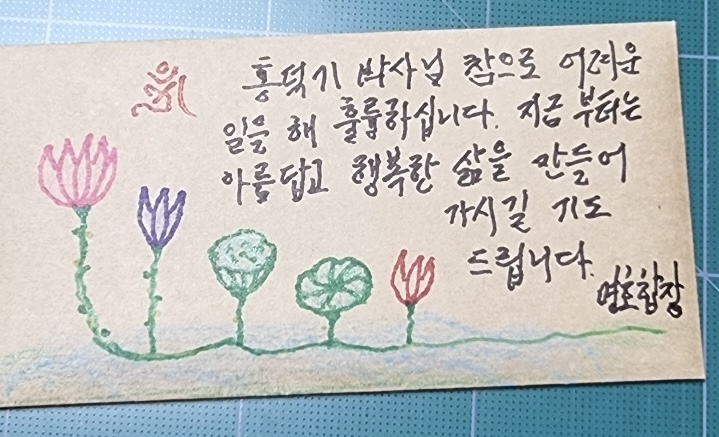 홍덕기 박사님 참으로 어려운
일을 해 훌륭하십니다. 지금 부터는
아름답고 행복한 삶을 만들어
가시길 기도
드립니다.
합장